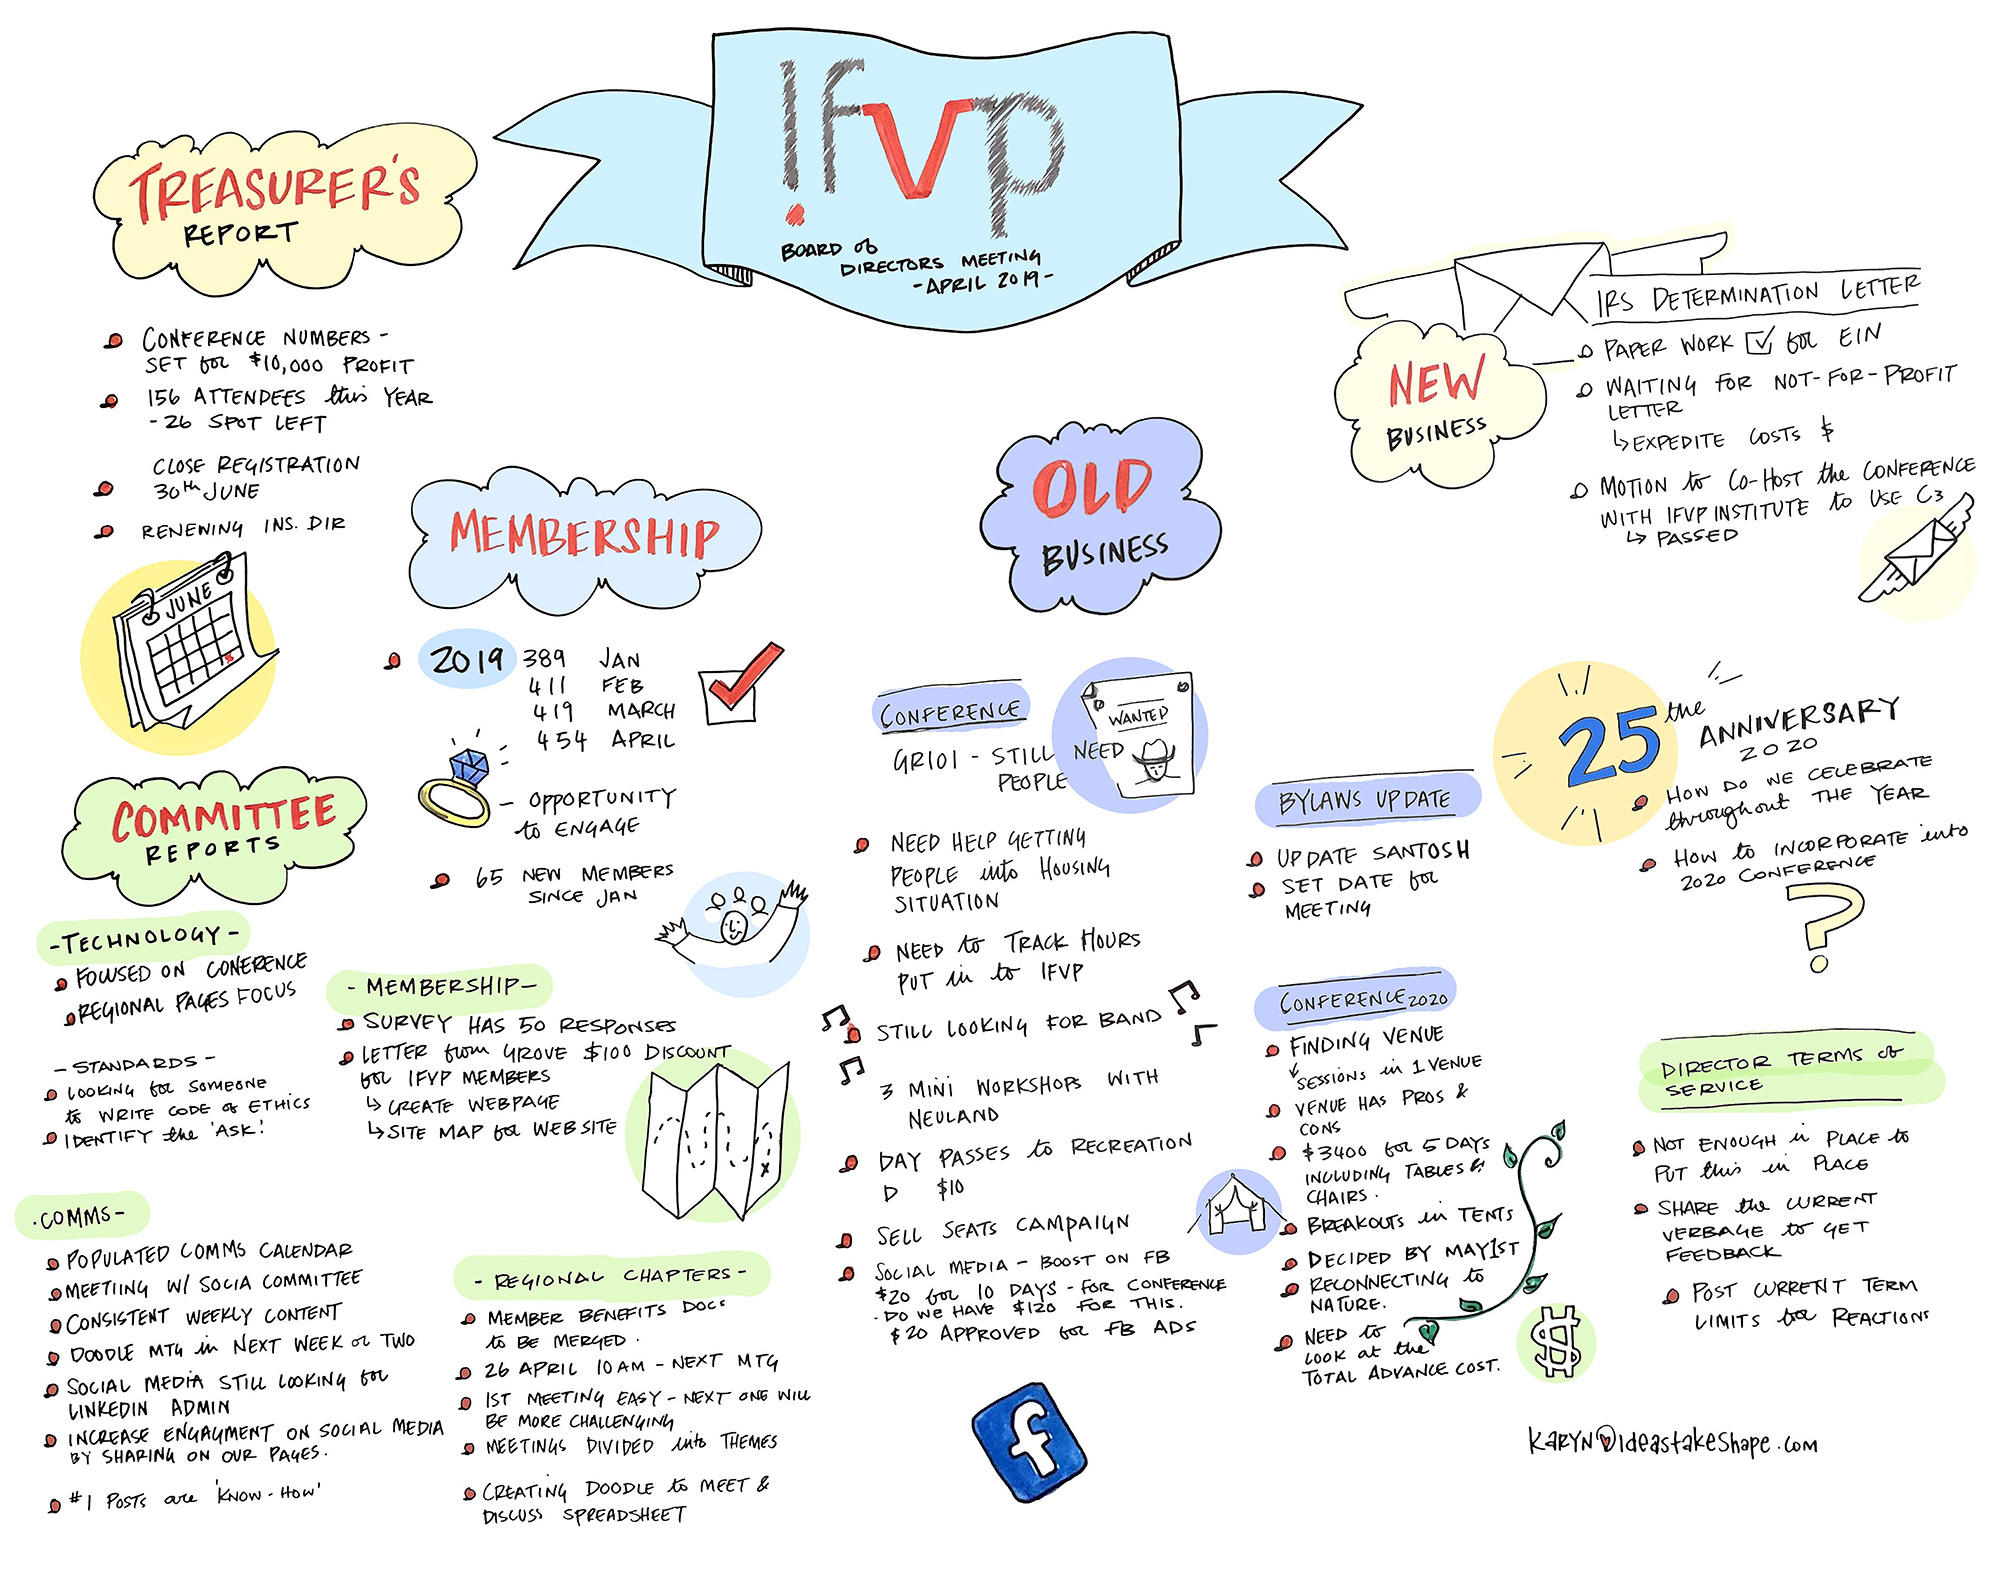 ifvp
BOARD of
DIRECTORS MEETING
- APRIL 2019 -
TREASURER'S
REPORT
CONFERENCE NUMBERS -
SET for $10,000 PROFIT
156 ATTENDEES this YEAR
- 26 SPOT LEFT
CLOSE REGISTRATION
30th JUNE
RENEWING INS. DIR
JUNE
MEMBERSHIP
2019 389 JAN
411 FEB
419 MARCH
454 APRIL
- OPPORTUNITY
to ENGAGE
65 NEW MEMBERS
SINCE JAN
COMMITTEE
REPORTS
- TECHNOLOGY -
FOCUSED ON CONERENCE
REGIONAL PAGES FOCUS
- STANDARDS -
LOOKING for SOMEONE
to WRITE CODE of ETHICS
IDENTIFY the 'ASK'.
- MEMBERSHIP -
SURVEY HAS 50 RESPONSES
LETTER from GROVE $100 DISCOUNT
for IFVP MEMBERS
↳ CREATE WEBPAGE
↳ SITE MAP for WEBSITE
. COMMS -
POPULATED COMMS CALENDAR
MEETIING W/ SOCIA COMMITTEE
CONSISTENT WEEKLY CONTENT
DOODLE MTG in NEXT WEEK or TWO
SOCIAL MEDIA STILL LOOKING for
LINKEDIN ADMIN
INCREASE ENGAGMENT ON SOCIAL MEDIA
BY SHARING ON OUR PAGES.
#1 POSTS are 'KNOW-HOW'
- REGIONAL CHAPTERS -
MEMBER BENEFITS DOCS
to BE MERGED.
26 APRIL 10AM - NEXT MTG
1ST MEETING EASY - NEXT ONE WILL
BE MORE CHALLENGING
MEETINGS DIVIDED into THEMES
CREATING DOODLE to MEET &
DISCUSS SPREADSHEET
OLD
BUSINESS
CONFERENCE
GR101 - STILL NEED
PEOPLE
WANTED
NEED HELP GETTING
PEOPLE into HOUSING
SITUATION
NEED to TRACK HOURS
PUT in to IFVP
STILL LOOKING FOR BAND
3 MINI WORKSHOPS WITH
NEULAND
DAY PASSES to RECREATION
D $10
SELL SEATS CAMPAIGN
SOCIAL MEDIA - BOOST ON FB
$20 for 10 DAYS - FOR CONFERENCE
- DO WE HAVE $120 FOR THIS.
$20 APPROVED for FB ADS
f
BYLAWS UPDATE
UPDATE SANTOSH
SET DATE for
MEETING
CONFERENCE 2020
FINDING VENUE
SESSIONS in 1 VENUE
VENUE HAS PROS &
CONS
$3400 for 5 DAYS
INCLUDING TABLES &
CHAIRS.
BREAKOUTS in TENTS
DECIDED BY MAY 1ST
RECONNECTING to
NATURE.
NEED to
LOOK at the
TOTAL ADVANCE COST.
$
NEW
BUSINESS
IRS DETERMINATION LETTER
PAPER WORK ☑ for EIN
WAITING FOR NOT-FOR-PROFIT
LETTER
↳ EXPEDITE COSTS $
MOTION to CO-HOST the CONFERENCE
WITH IFVP INSTITUTE to USE C3
↳ PASSED
25 the
ANNIVERSARY
2020
HOW DO WE CELEBRATE
throughout THE YEAR
HOW to INCORPORATE into
2020 CONFERENCE
?
DIRECTOR TERMS of
SERVICE
NOT ENOUGH in PLACE to
PUT this in PLACE
SHARE the CURRENT
VERBAGE to GET
FEEDBACK
POST CURRENT TERM
LIMITS for REACTIONS
KARYN@ideastakeshape.com